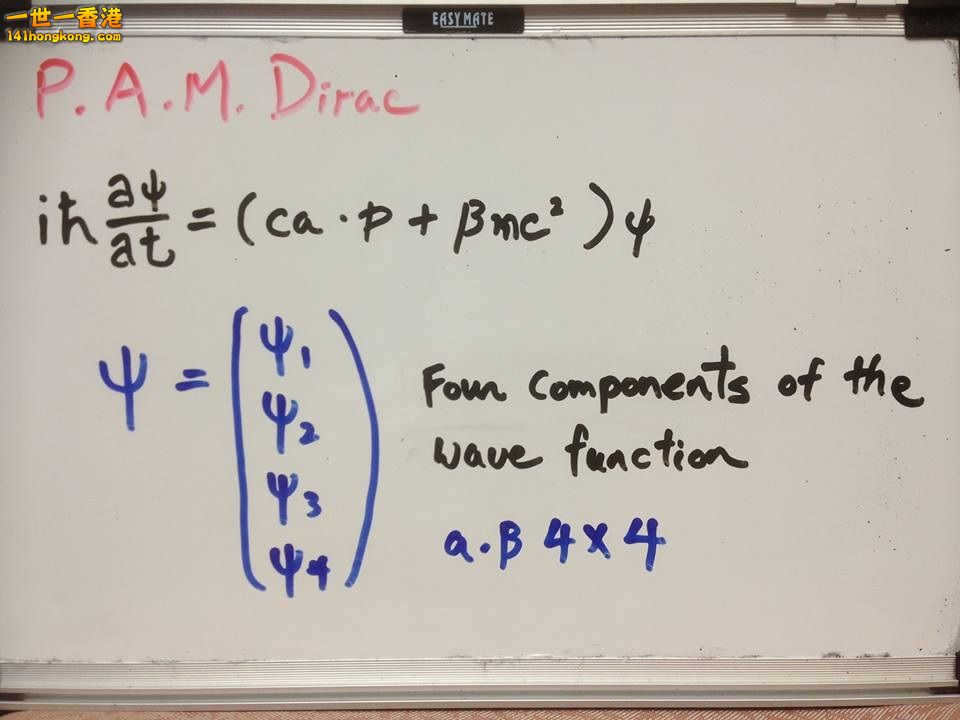 一世一香港
141hongkong.com
EASYMATE
P. A. M. Dirac
iħ ∂ψ/∂t = (ca · p + βmc²)ψ
ψ = (ψ1
ψ2
ψ3
ψ4)
Four components of the
wave function
a.β 4×4